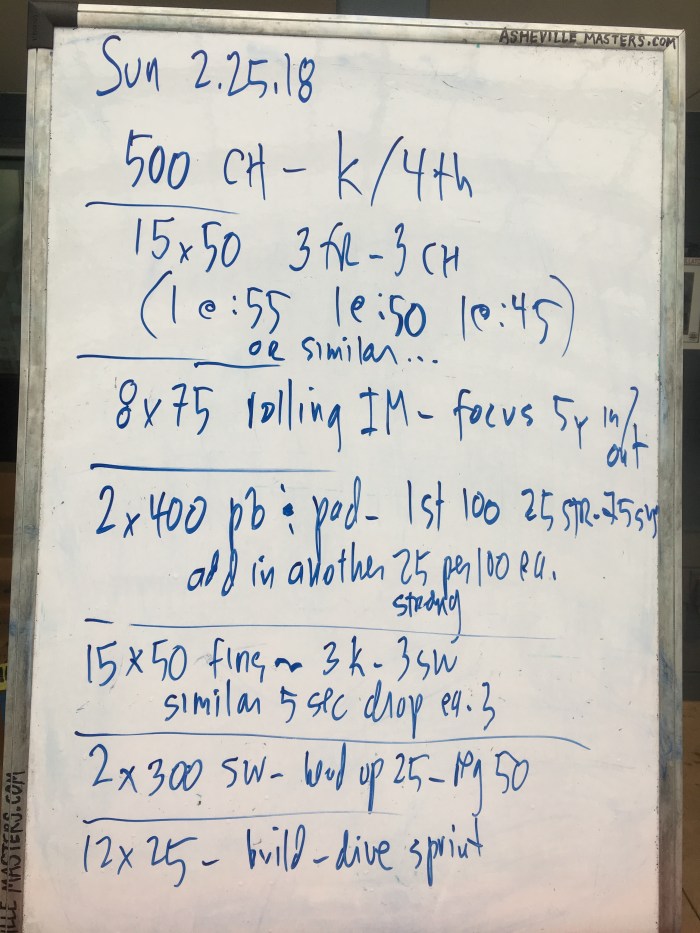 ASHEVILLE MASTERS.COM
Sun 2.25.18
500 CH - K/4th
15x50 3 fR - 3 CH
(1@:55 1@:50 1@:45)
OR similar...
8x75 rolling IM - focus 5y in/out
2x400 pb & pad - 1st 100 25 STR. 75 sw
add in another 25 per 100 ea.
strong
15x50 fins 3k - 3sw
similar 5 sec drop ea. 3
2x300 sw - head up 25 - reg 50
12x25 - build - dive sprint
ILLE MASTERS.COM